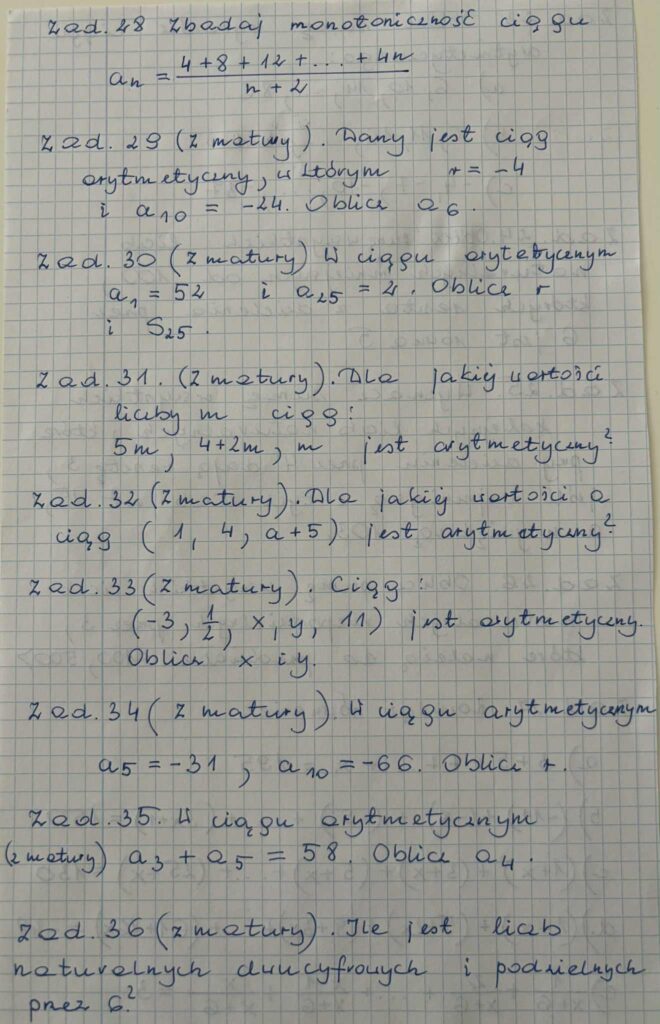 Zad. 28 Zbadaj monotoniczność ciągu
an = 4+8+12+...+4n / n+2
Zad. 29 (z matury). Dany jest ciąg
arytmetyczny, w którym r = -4
i a10 = -24. Oblicz a6.
Zad. 30 (z matury) W ciągu arytetycznym
a1 = 52 i a25 = 4. Oblicz r
i S25.
Zad. 31. (z matury). Dla jakiej wartości
liczby m ciąg:
5m, 4+2m, m jest arytmetyczny?
Zad. 32 (z matury). Dla jakiej wartości a
ciąg (1, 4, a+5) jest arytmetyczny?
Zad. 33 (z matury). Ciąg:
(-3, 1/2, x, y, 11) jest arytmetyczny.
Oblicz x i y.
Zad. 34 (z matury). W ciągu arytmetycznym
a5 = -31, a10 = -66. Oblicz r.
Zad. 35. W ciągu arytmetycznym
(z matury) a3 + a5 = 58. Oblicz a4.
Zad. 36 (z matury). Ile jest liczb
naturalnych dwucyfrowych i podzielnych
przez 6?